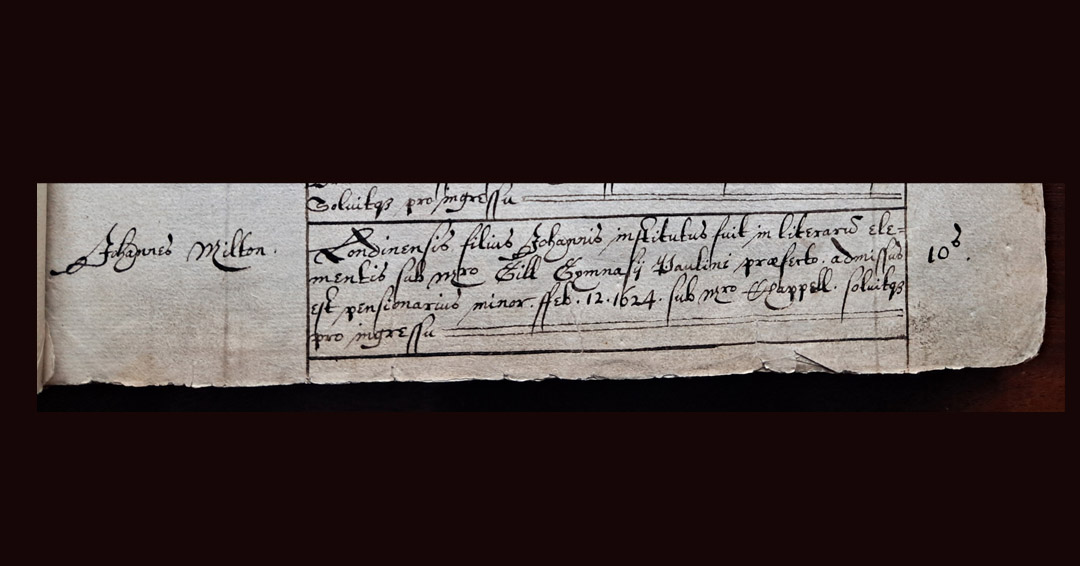 Solvitqꝫ pro ingressu
Johannes Milton.
Londinensis filius Johannis institutus fuit in literarũ ele=
mentis sub Mro Gill Gymnasij Paulini præfecto. admissus 10s.
est pensionarius minor. ffeb. 12. 1624. sub Mro Chappell. solvitqꝫ
pro ingressu